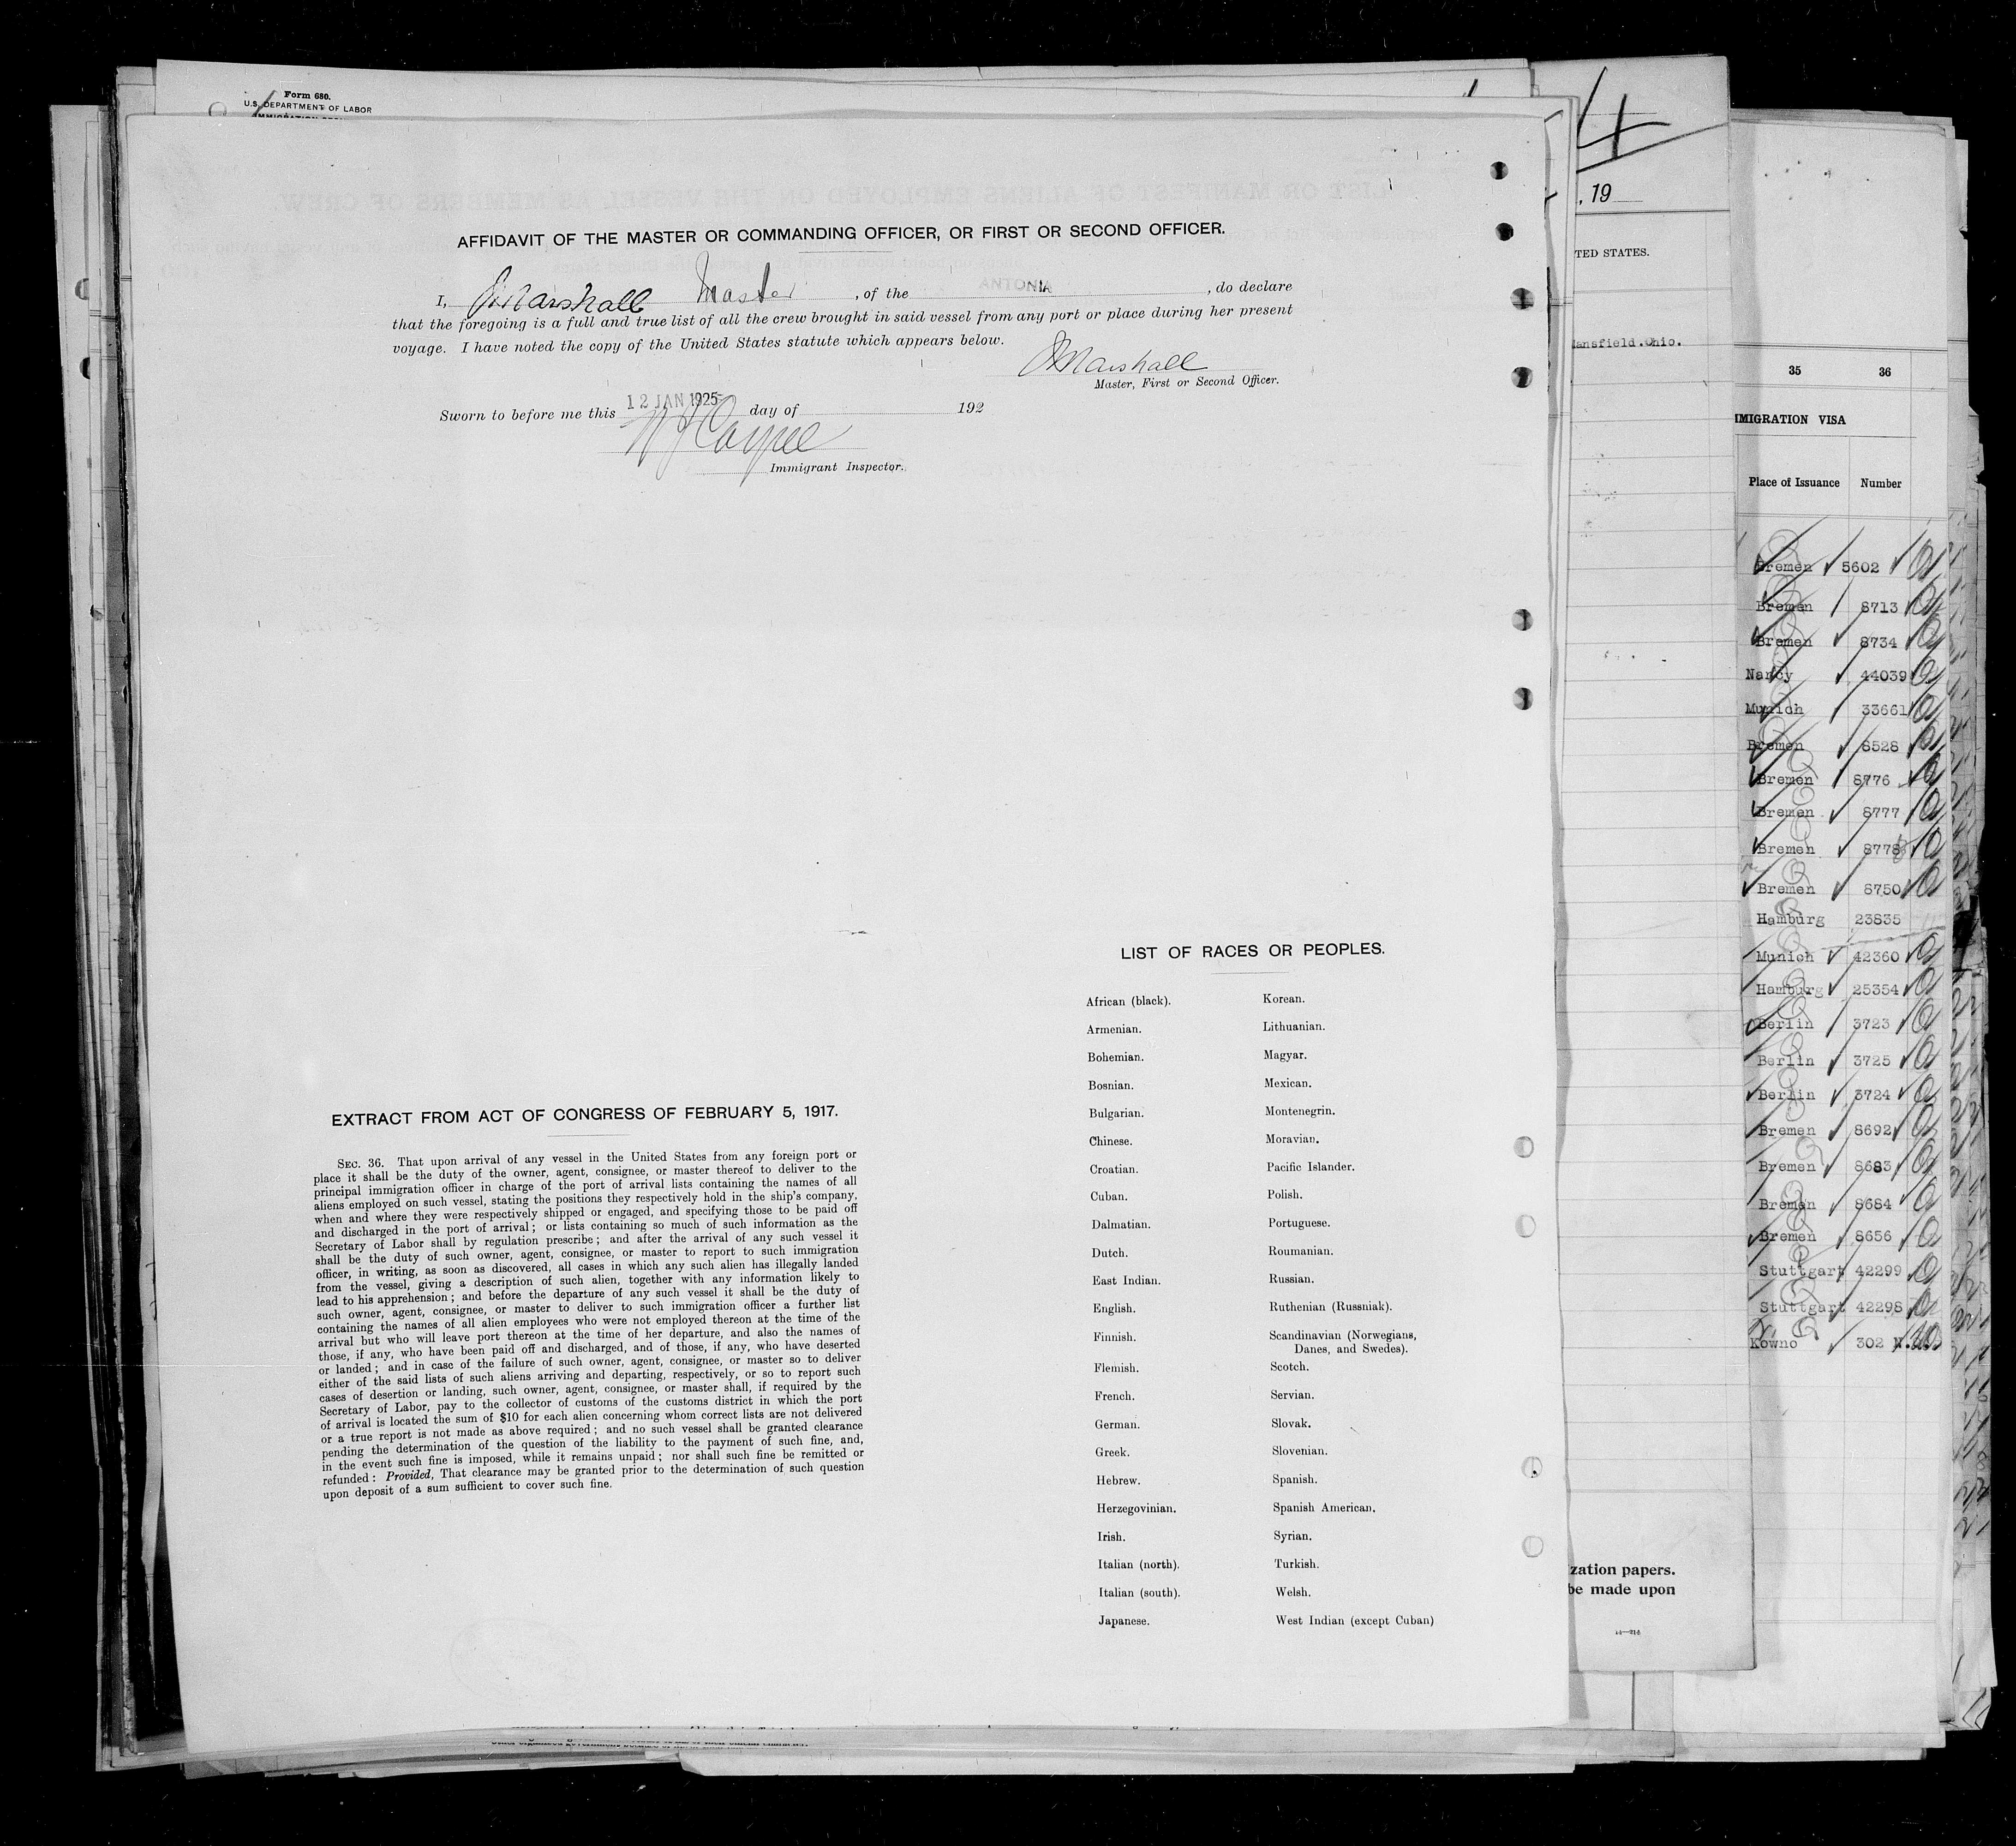 Form 680.
U.S. DEPARTMENT OF LABOR
AFFIDAVIT OF THE MASTER OR COMMANDING OFFICER, OR FIRST OR SECOND OFFICER.
I, Marshall Master, of the ANTONIA, do declare
that the foregoing is a full and true list of all the crew brought in said vessel from any port or place during her present
voyage. I have noted the copy of the United States statute which appears below.
Marshall
Master, First or Second Officer.
Sworn to before me this 12 JAN 1925 day of 192
Immigrant Inspector.
EXTRACT FROM ACT OF CONGRESS OF FEBRUARY 5, 1917.
SEC. 36. That upon arrival of any vessel in the United States from any foreign port or
place it shall be the duty of the owner, agent, consignee, or master thereof to deliver to the
principal immigration officer in charge of the port of arrival lists containing the names of all
aliens employed on such vessel, stating the positions they respectively hold in the ship's company,
when and where they were respectively shipped or engaged, and specifying those to be paid off
and discharged in the port of arrival; or lists containing so much of such information as the
Secretary of Labor shall by regulation prescribe; and after the arrival of any such vessel it
shall be the duty of such owner, agent, consignee, or master to report to such immigration
officer, in writing, as soon as discovered, all cases in which any such alien has illegally landed
from the vessel, giving a description of such alien, together with any information likely to
lead to his apprehension; and before the departure of any such vessel it shall be the duty of
such owner, agent, consignee, or master to deliver to such immigration officer a further list
containing the names of all alien employees who were not employed thereon at the time of the
arrival but who will leave port thereon at the time of her departure, and also the names of
those, if any, who have been paid off and discharged, and of those, if any, who have deserted
or landed; and in case of the failure of such owner, agent, consignee, or master so to deliver
either of the said lists of such aliens arriving and departing, respectively, or so to report such
cases of desertion or landing, such owner, agent, consignee, or master shall, if required by the
Secretary of Labor, pay to the collector of customs of the customs district in which the port
of arrival is located the sum of $10 for each alien concerning whom correct lists are not delivered
or a true report is not made as above required; and no such vessel shall be granted clearance
pending the determination of the question of the liability to the payment of such fine, and,
in the event such fine is imposed, while it remains unpaid; nor shall such fine be remitted or
refunded: Provided, That clearance may be granted prior to the determination of such question
upon deposit of a sum sufficient to cover such fine.
LIST OF RACES OR PEOPLES.
African (black). Korean.
Armenian. Lithuanian.
Bohemian. Magyar.
Bosnian. Mexican.
Bulgarian. Montenegrin.
Chinese. Moravian.
Croatian. Pacific Islander.
Cuban. Polish.
Dalmatian. Portuguese.
Dutch. Roumanian.
East Indian. Russian.
English. Ruthenian (Russniak).
Finnish. Scandinavian (Norwegians,
Danes, and Swedes).
Flemish. Scotch.
French. Servian.
German. Slovak.
Greek. Slovenian.
Hebrew. Spanish.
Herzegovinian. Spanish American.
Irish. Syrian.
Italian (north). Turkish.
Italian (south). Welsh.
Japanese. West Indian (except Cuban)
4
, 19
TED STATES.
ansfield.Ohio.
zation papers.
be made upon
35 36
MIGRATION VISA
Place of Issuance Number
Bremen 5602
Bremen 8713
Bremen 8734
Nancy 44039
Munich 33661
Bremen 8528
Bremen 8776
Bremen 8777
Bremen 8778
Bremen 8750
Hamburg 23835
Munich 42360
Hamburg 25354
Berlin 3723
Berlin 3725
Berlin 3724
Bremen 8692
Bremen 8683
Bremen 8684
Bremen 8656
Stuttgart 42299
Stuttgart 42298
Kowno 302